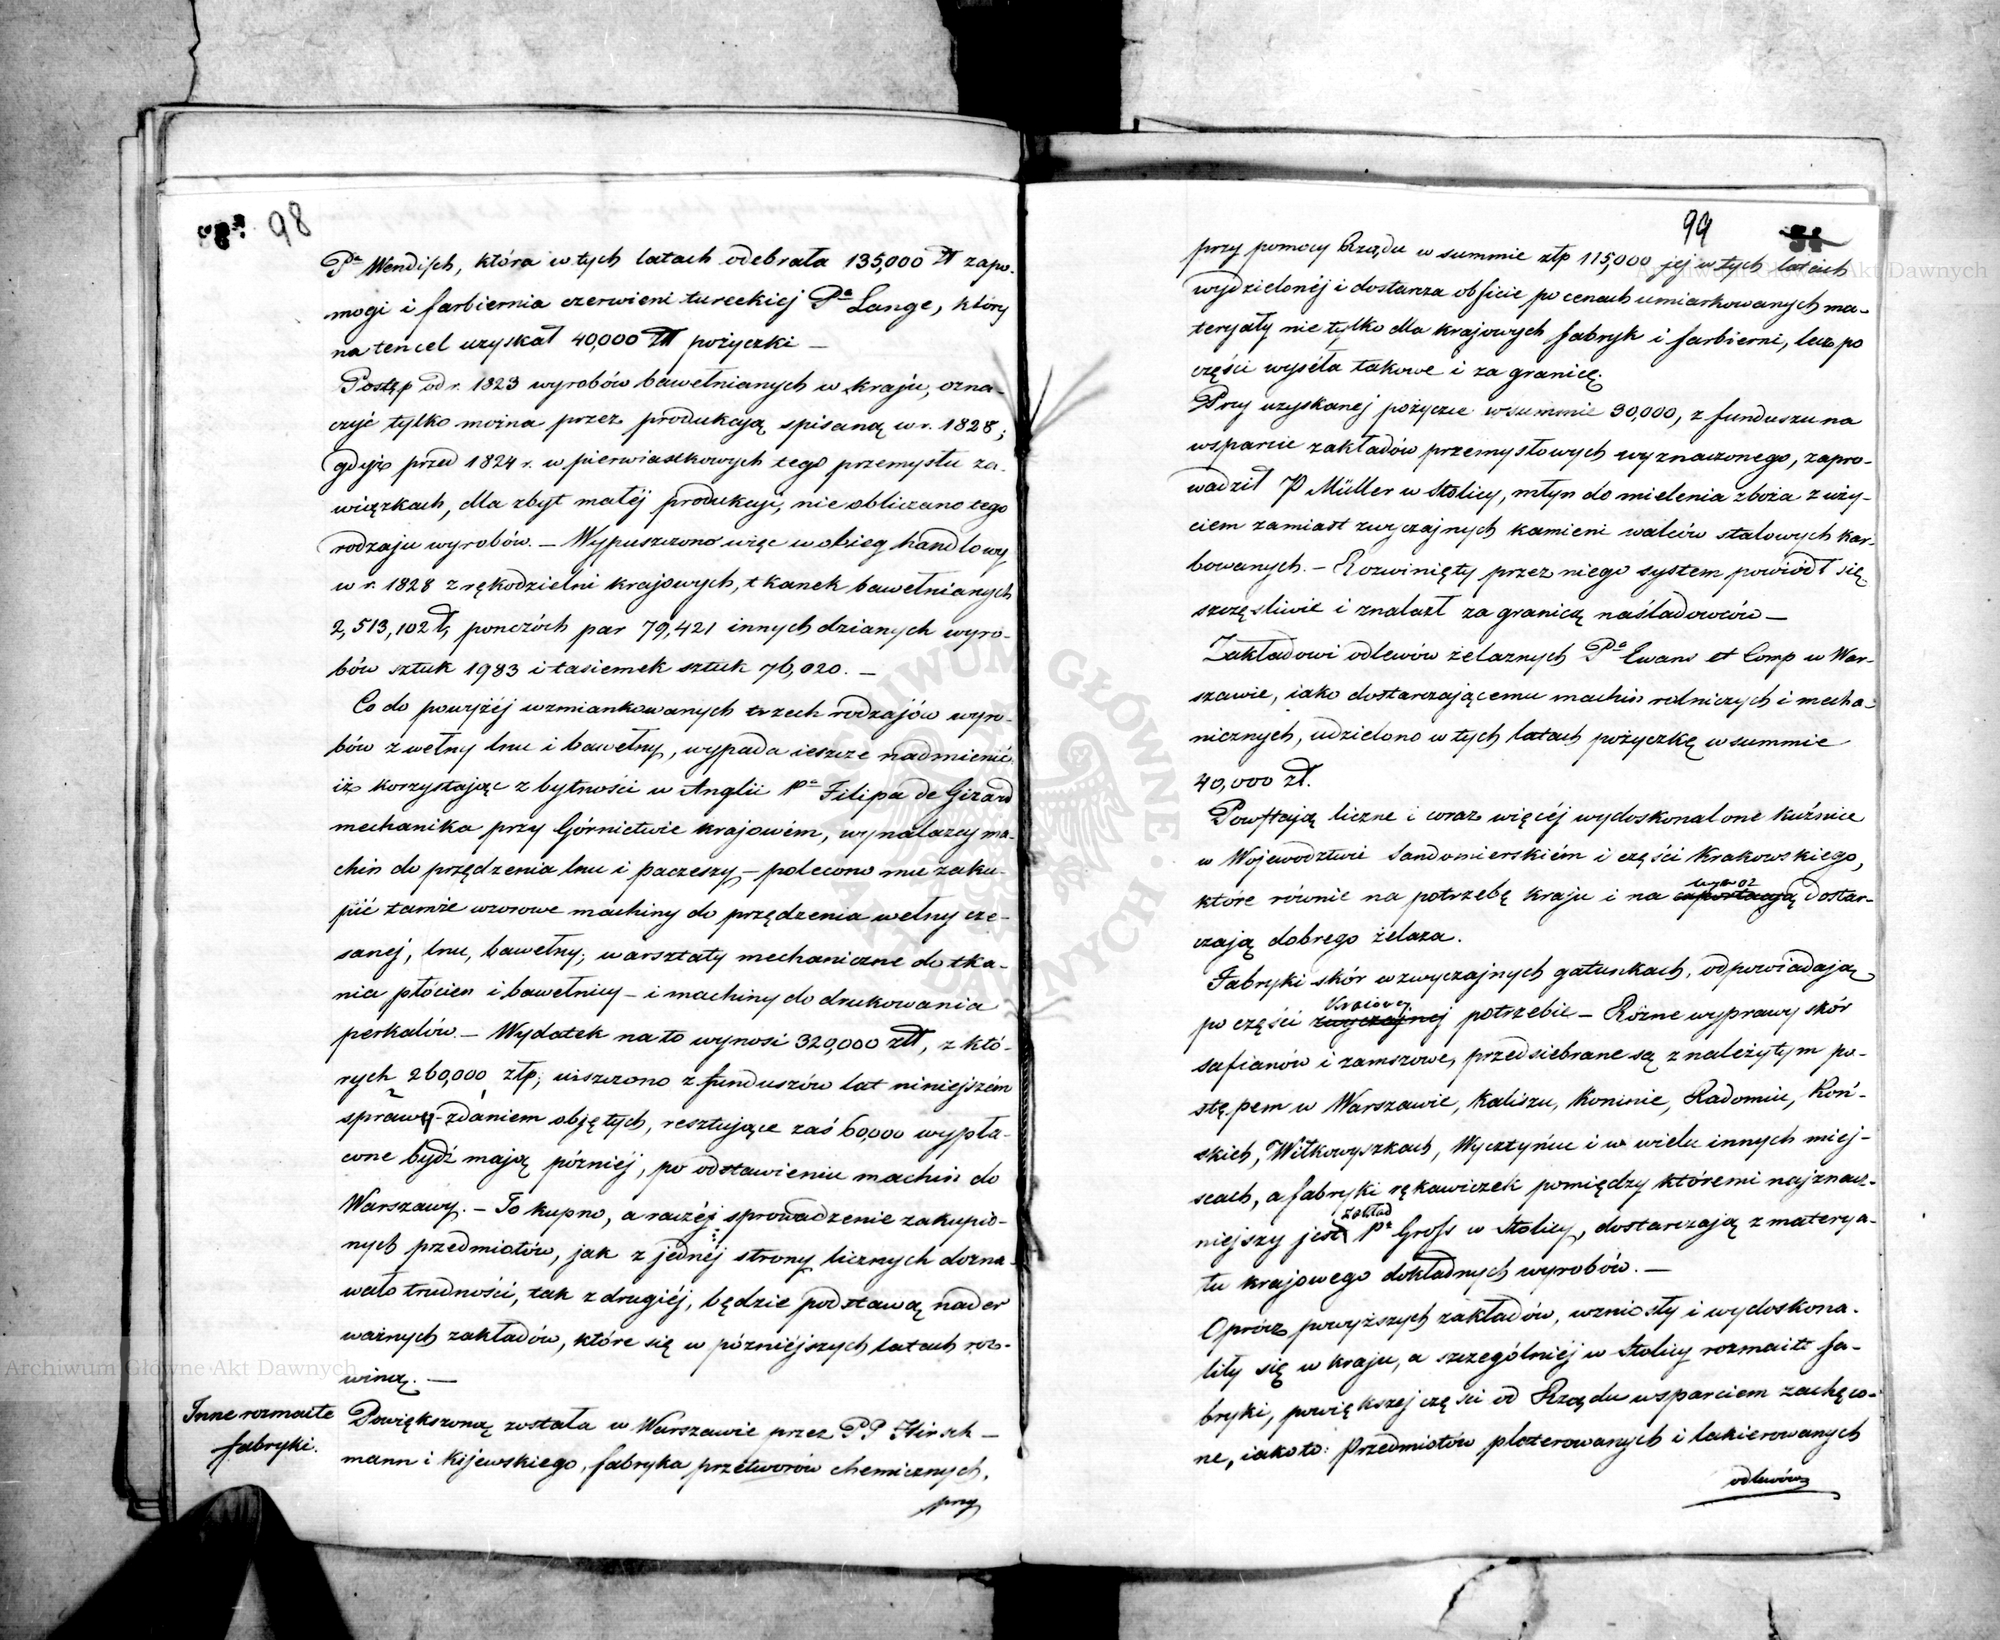 98
Pa Wendisch, która w tych latach odebrała 135,000 zł zapo-
mogi i farbiernia czerwieni tureckiej Pa Lange, który
na ten cel uzyskał 40,000 zł pożyczki —
Postęp od r. 1823 wyrobów bawełnianych w kraju, ozna-
czyć tylko można przez produkcyą spisaną w r. 1828;
gdyż przed 1824 r. w pierwiastkowych tego przemysłu za-
wiązkach, dla zbyt małéj produkcyi, nie obliczano tego
rodzaju wyrobów. — Wypuszczono więc w obieg handlowy
w r. 1828 z rękodzielni krajowych, tkanek bawełnianych
2,513,102 ł, pończóch par 79,421 innych dzianych wyro-
bów sztuk 1983 i tasiemek sztuk 76,020. —
Co do powyżéj wzmiankowanych trzech rodzajów wyro-
bów z wełny lnu i bawełny, wypada ieszcze nadmienić
iż korzystając z bytności w Anglii Pa Filipa de Girard
mechanika przy Górnictwie krajowém, wynalazcy ma-
chin do przędzenia lnu i paczeszy, — polecono mu zaku-
pić tamże wzorowe machiny do przędzenia wełny cze-
sanej, lnu, bawełny; warsztaty mechaniczne do tka-
nia płócien i bawełnicy — i machiny do drukowania
perkalów. — Wydatek na to wynosi 320,000 złł, z któ-
rych 260,000 złp; uiszczono z funduszów lat niniejszém
sprawy-zdaniem objętych, resztujące zaś 60,000 wypła-
cone bydź mają późniéj, po odstawieniu machin do
Warszawy. — To kupno, a raczéj sprowadzenie zakupio-
nych przedmiotów, jak z jednéj strony licznych dozna-
wało trudności, tak z drugiéj, będzie podstawą nader
ważnych zakładów, które się w późniéjszych latach roz-
winą. —
Inne rozmaite
fabryki.
Powiększoną została w Warszawie przez PP Hirsch-
mann i Kijewskiego, fabryka przetworów chemicznych,
przy
99
przy pomocy Rządu w summie złp 115,000 jej w tych latach
wydzielonéj i dostarcza obficie po cenach umiarkowanych ma-
teryały nie tylko dla krajowych fabryk i farbierni, lecz po
części wyséła takowe i za granicę.
Przy uzyskanej pożyczce w summie 30,000, z funduszu na
wsparcie zakładów przemysłowych wyznaczonego, zapro-
wadził P Müller w Stolicy, młyn do mielenia zboża z uży-
ciem zamiast zwyczajnych kamieni walców stalowych kar-
bowanych. — Rozwinięty przez niego system powiódł się
szczęśliwie i znalazł za granicą naśladowców —
Zakładowi odlewów żelaznych Pa Ewans et Comp w War-
szawie, iako dostarczającemu machin rolniczych i mecha-
nicznych, udzielono w tych latach pożyczkę w summie
40,000 zł.
Powstają liczne i coraz więcéj wydoskonalone kuźnice
w Województwie Sandomierskiém i części Krakowskiego,
wywoz
które równie na potrzebę kraju i na exportacyą dostar-
czają dobrego żelaza.
Fabryki skór w zwyczajnych gatunkach, odpowiadają
Kraiowey
po części zwyczajnej potrzebie — Różne wyprawy skór
safianów i zamszowe, przedsiebrane są z należytym po-
stępem w Warszawie, Kaliszu, Koninie, Radomiu, Koń-
skich, Wiłkowyszkach, Wyczłyńcu i w wielu innych miej-
scach, a fabryki rękawiczek pomiędzy któremi najznacz-
zakład
niejszy jest Pa Gross w Stolicy, dostarczają z materya-
łu krajowego dokładnych wyrobów. —
Oprócz powyższych zakładów, wzniosły i wydoskona-
liły się w kraju, a szczególniej w Stolicy rozmaite fa-
bryki, powiększej części od Rządu wsparciem zachęco-
ne, iako to: Przedmiotów platerowanych i lakierowanych
odlewów
Archiwum Główne Akt Dawnych
Archiwum Główne Akt Dawnych
ARCHIWUM GŁÓWNE AKT DAWNYCH